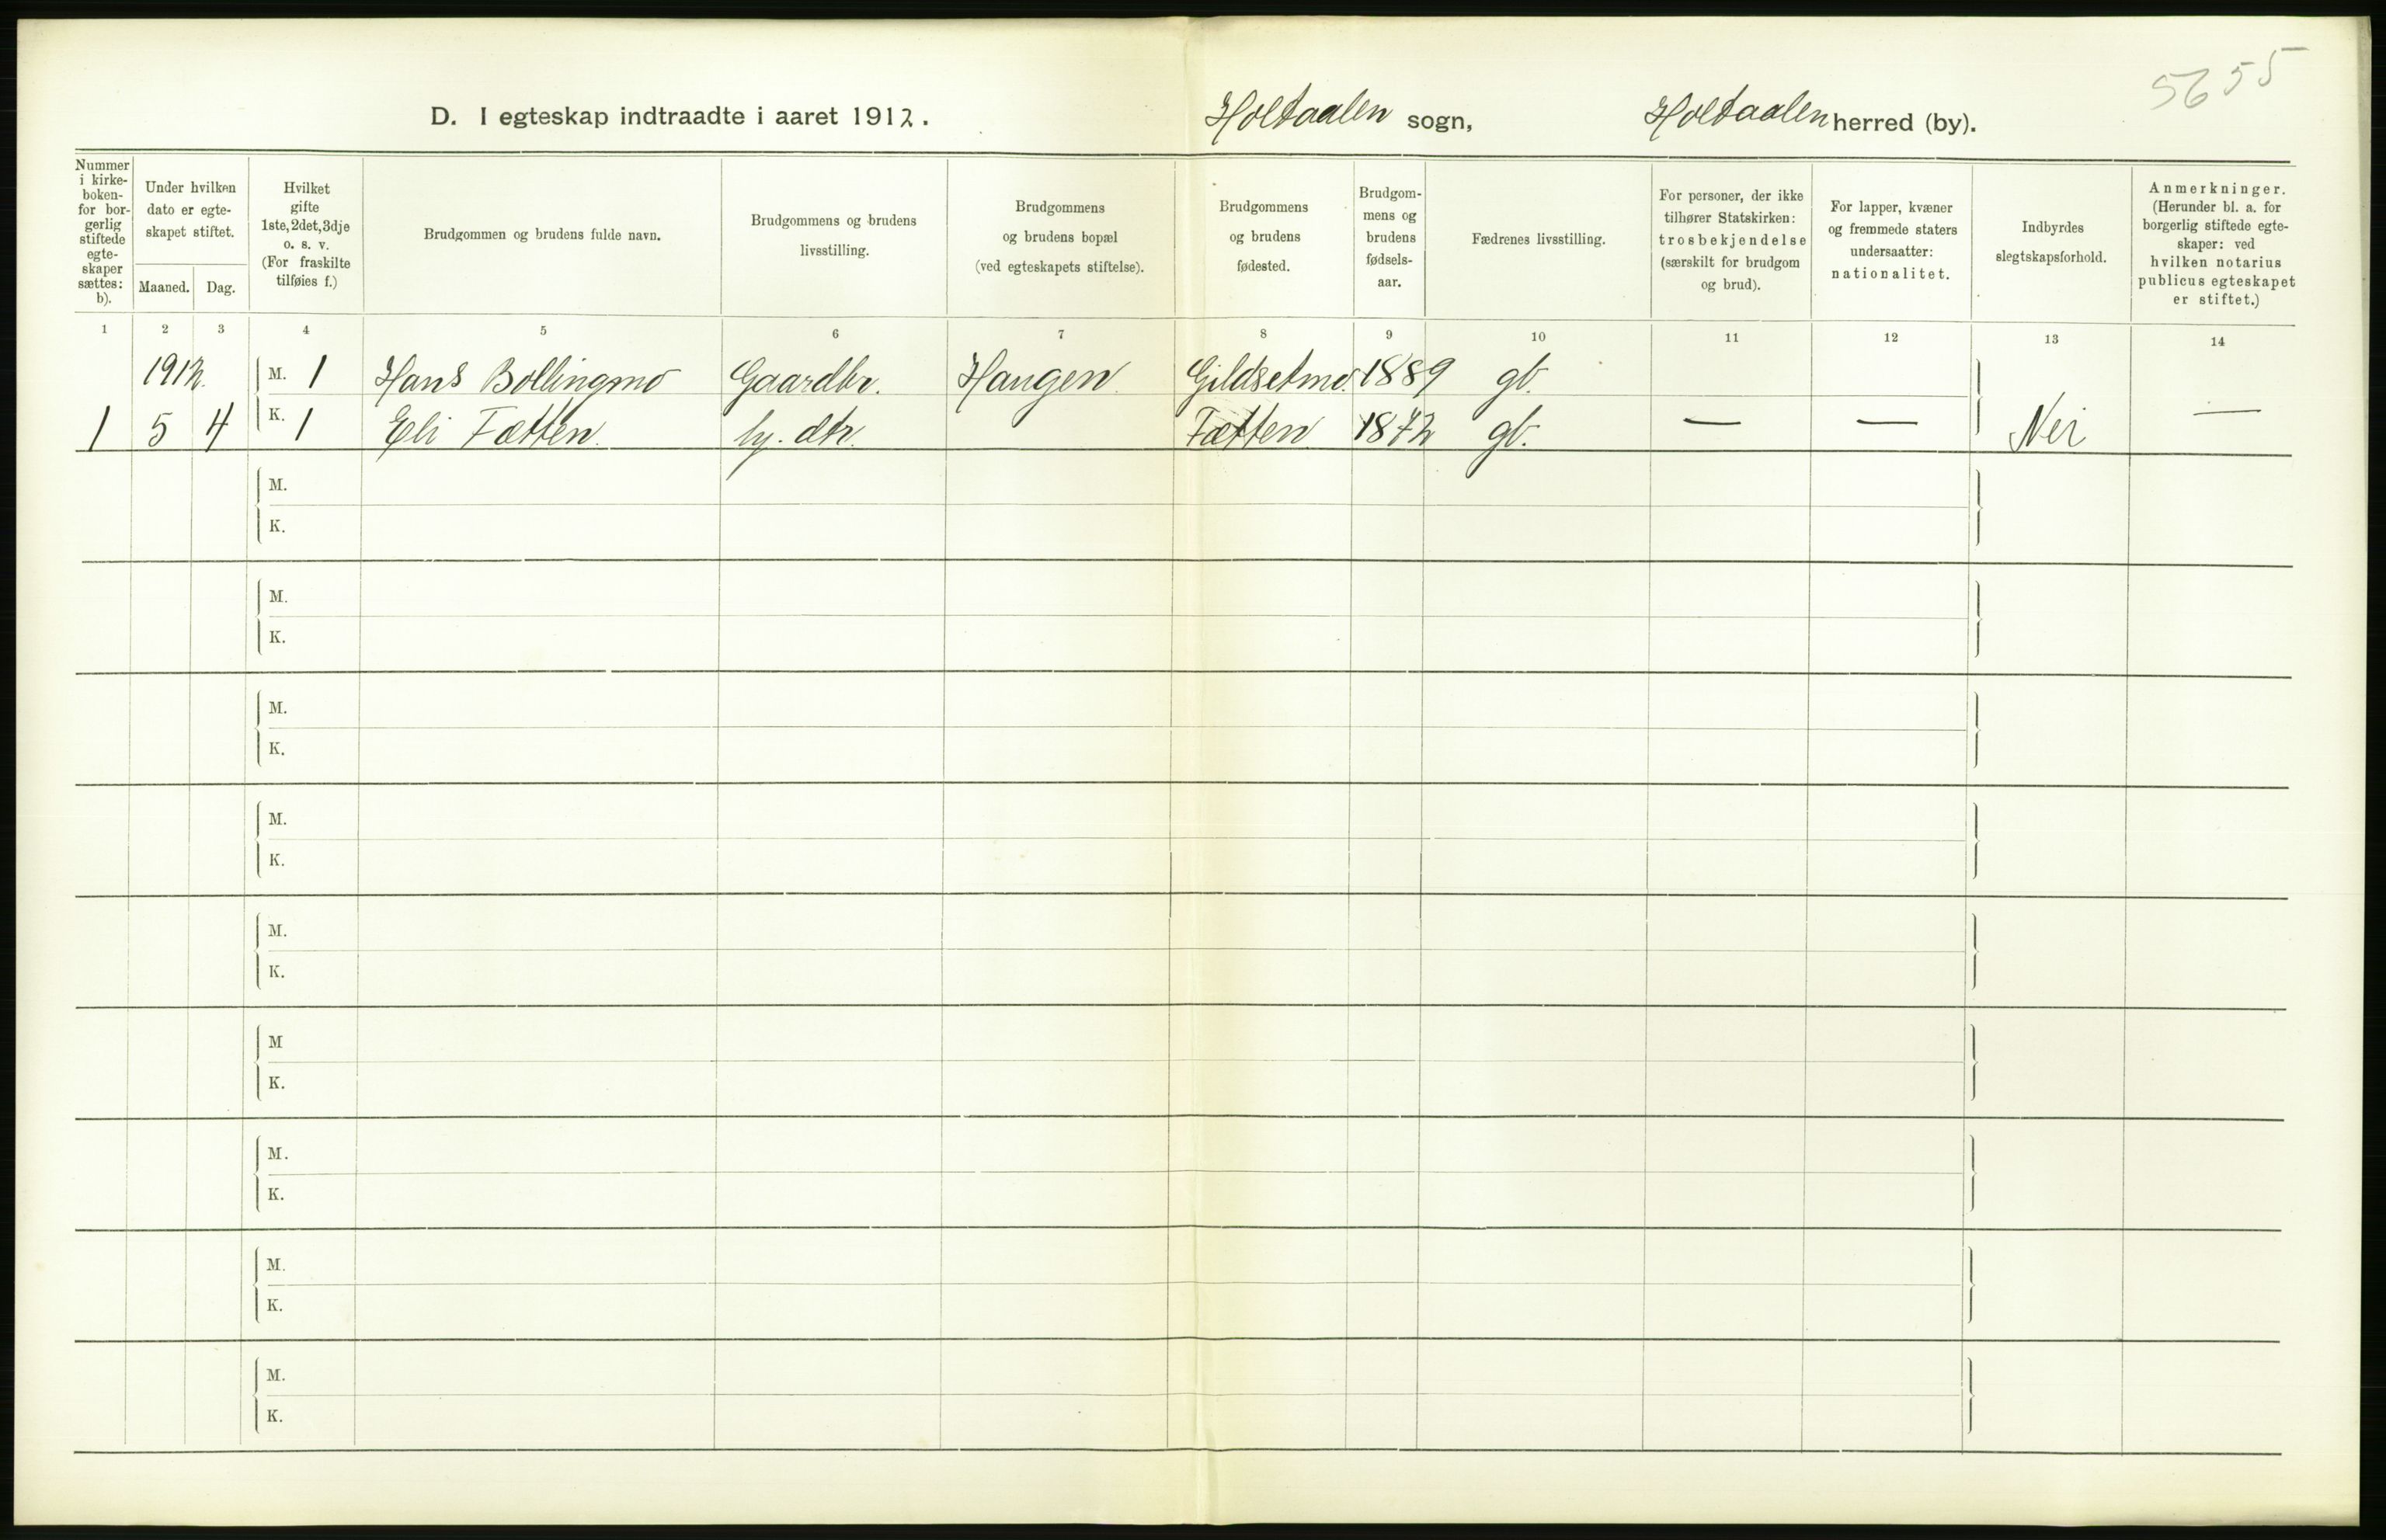 5655
D. I egteskap indtraadte i aaret 1912. Holtaalen sogn, Holtaalen herred (by).
Nummer i kirke-boken- for bor-gerlig stiftede egte-skaper sættes: b).
Under hvilken dato er egte-skapet stiftet.
Maaned. Dag.
Hvilket gifte 1ste, 2det, 3dje o. s. v. (For fraskilte tilføies f.)
Brudgommen og brudens fulde navn.
Brudgommens og brudens livsstilling.
Brudgommens og brudens bopæl (ved egteskapets stiftelse).
Brudgommens og brudens fødested.
Brudgom-mens og brudens fødsels-aar.
Fædrenes livsstilling.
For personer, der ikke tilhører Statskirken: trosbekjendelse (særskilt for brudgom og brud).
For lapper, kvæner og fremmede staters undersaatter: nationalitet.
Indbyrdes slegtskapsforhold.
Anmerkninger. (Herunder bl. a. for borgerlig stiftede egte-skaper: ved hvilken notarius publicus egteskapet er stiftet.)
1 2 3 4 5 6 7 8 9 10 11 12 13 14
1912. M. 1 Hans Bollingmo Gaardbr. Haugen Gildsetmo. 1889 gb.
1 5 4 K. 1 Eli Fætten. hj. dtr. Fætten 1872 gb. — — Nei —
M.
K.
M.
K.
M.
K.
M.
K.
M.
K.
M
K.
M.
K.
M.
K.
M.
K.